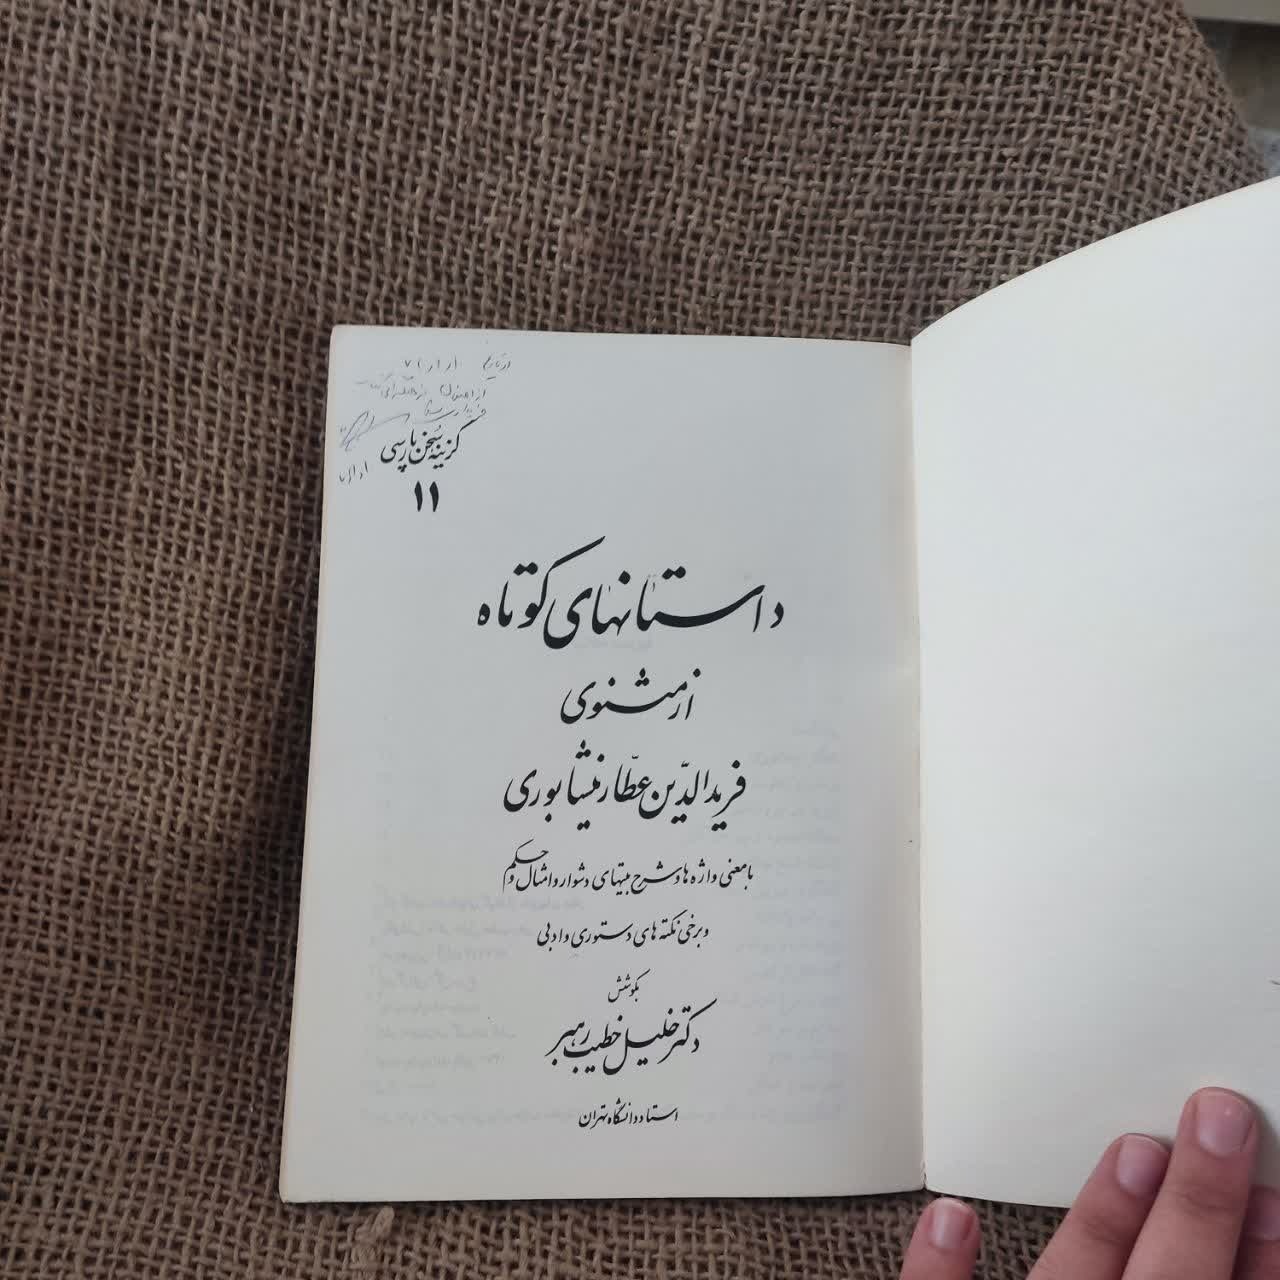 گزینهٔ سخن پارسی
۱۱
داستانهای کوتاه
از مثنوی
فریدالدّین عطّار نیشابوری
با معنی واژه ها و شرح بیتهای دشوار و امثال و حکم
و برخی نکته های دستوری و ادبی
بکوشش
دکتر خلیل خطیب رهبر
استاد دانشگاه تهران